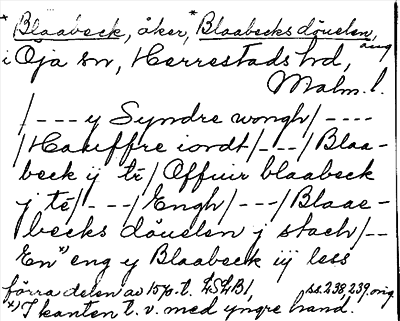 * Blaabeck, åker, * Blaabecks döuelen, äng
i Öja sn, Herrestads hd,
Malm. l.
/--- y Syndre wongh/----
/Hauffre iordt/---/Blaa-
beck ij tē/Offuir blaabeck
j tē/---/Engh/---/Blaae-
becks döuelen j stach/--
En*) eng y Blaabeck iij less
förra delen av 15%.t. LSLB1, ss. 238, 239. orig.
*) I kanten t. v. med yngre hand.